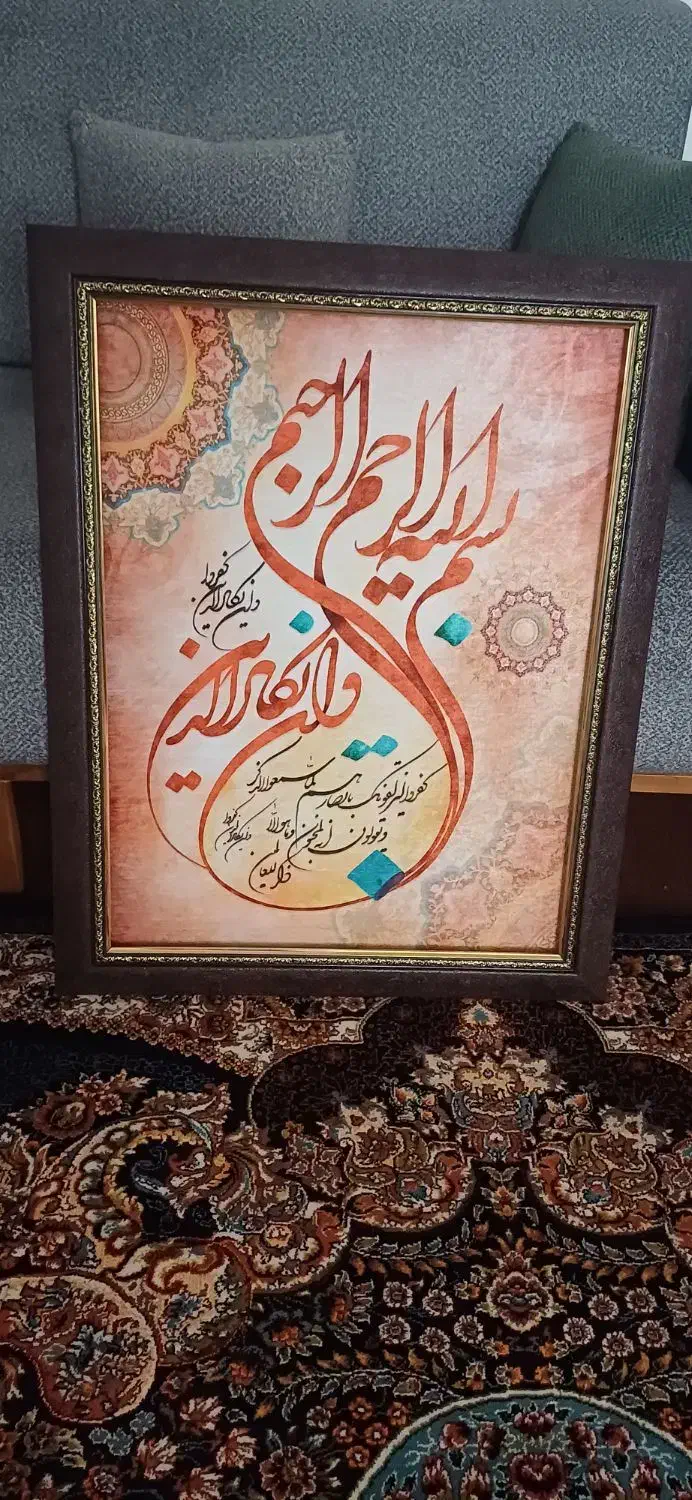 بسم الله الرحمن الرحیم
وان یکاد الذین
کفروا
وان یکاد الذین
کفروا لیزلقونک بابصارهم لما سمعوا الذکر
ویقولون انه لمجنون وما هو الا
ذکر للعالمین
کفروا
وان یکاد الذین